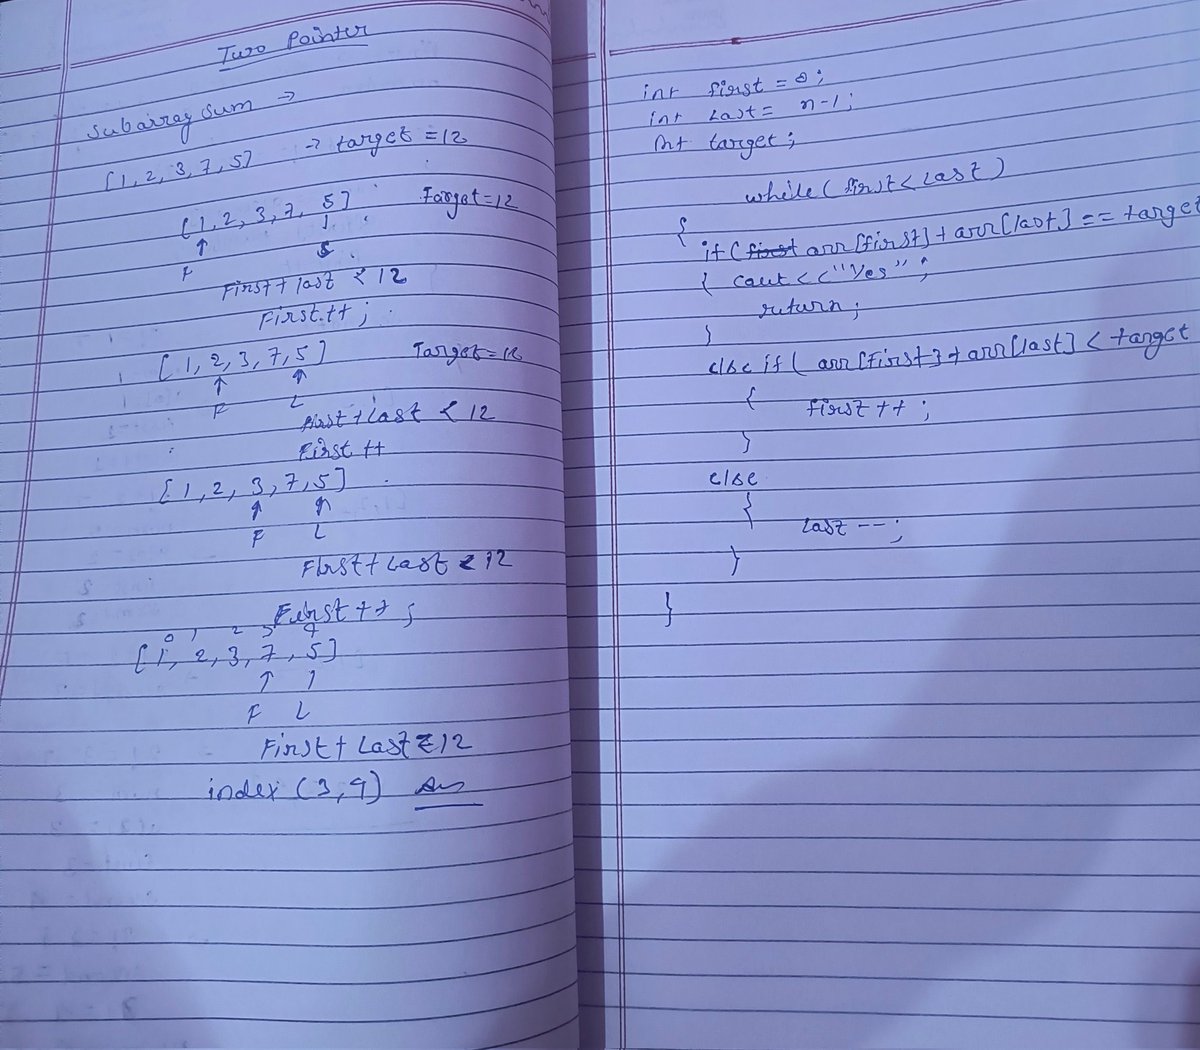 Two Pointer
Subarray Sum →
[1, 2, 3, 7, 5] → target = 12
[1, 2, 3, 7, 5] Target = 12
F
First + last < 12
First ++;
[1, 2, 3, 7, 5] Target = 12
F L
First + Last < 12
First ++
[1, 2, 3, 7, 5]
F L
First + Last < 12
First ++;
0 1 2 3 4
[1, 2, 3, 7, 5]
F L
First + Last = 12
index (3, 4) Ans
int first = 0;
int last = n-1;
int target;
while (first < last)
{
if (first arr[first] + arr[last] == target
{ cout << "Yes";
return;
}
else if ( arr[first] + arr[last] < target
{
first ++ ;
}
else
{
last -- ;
}
}